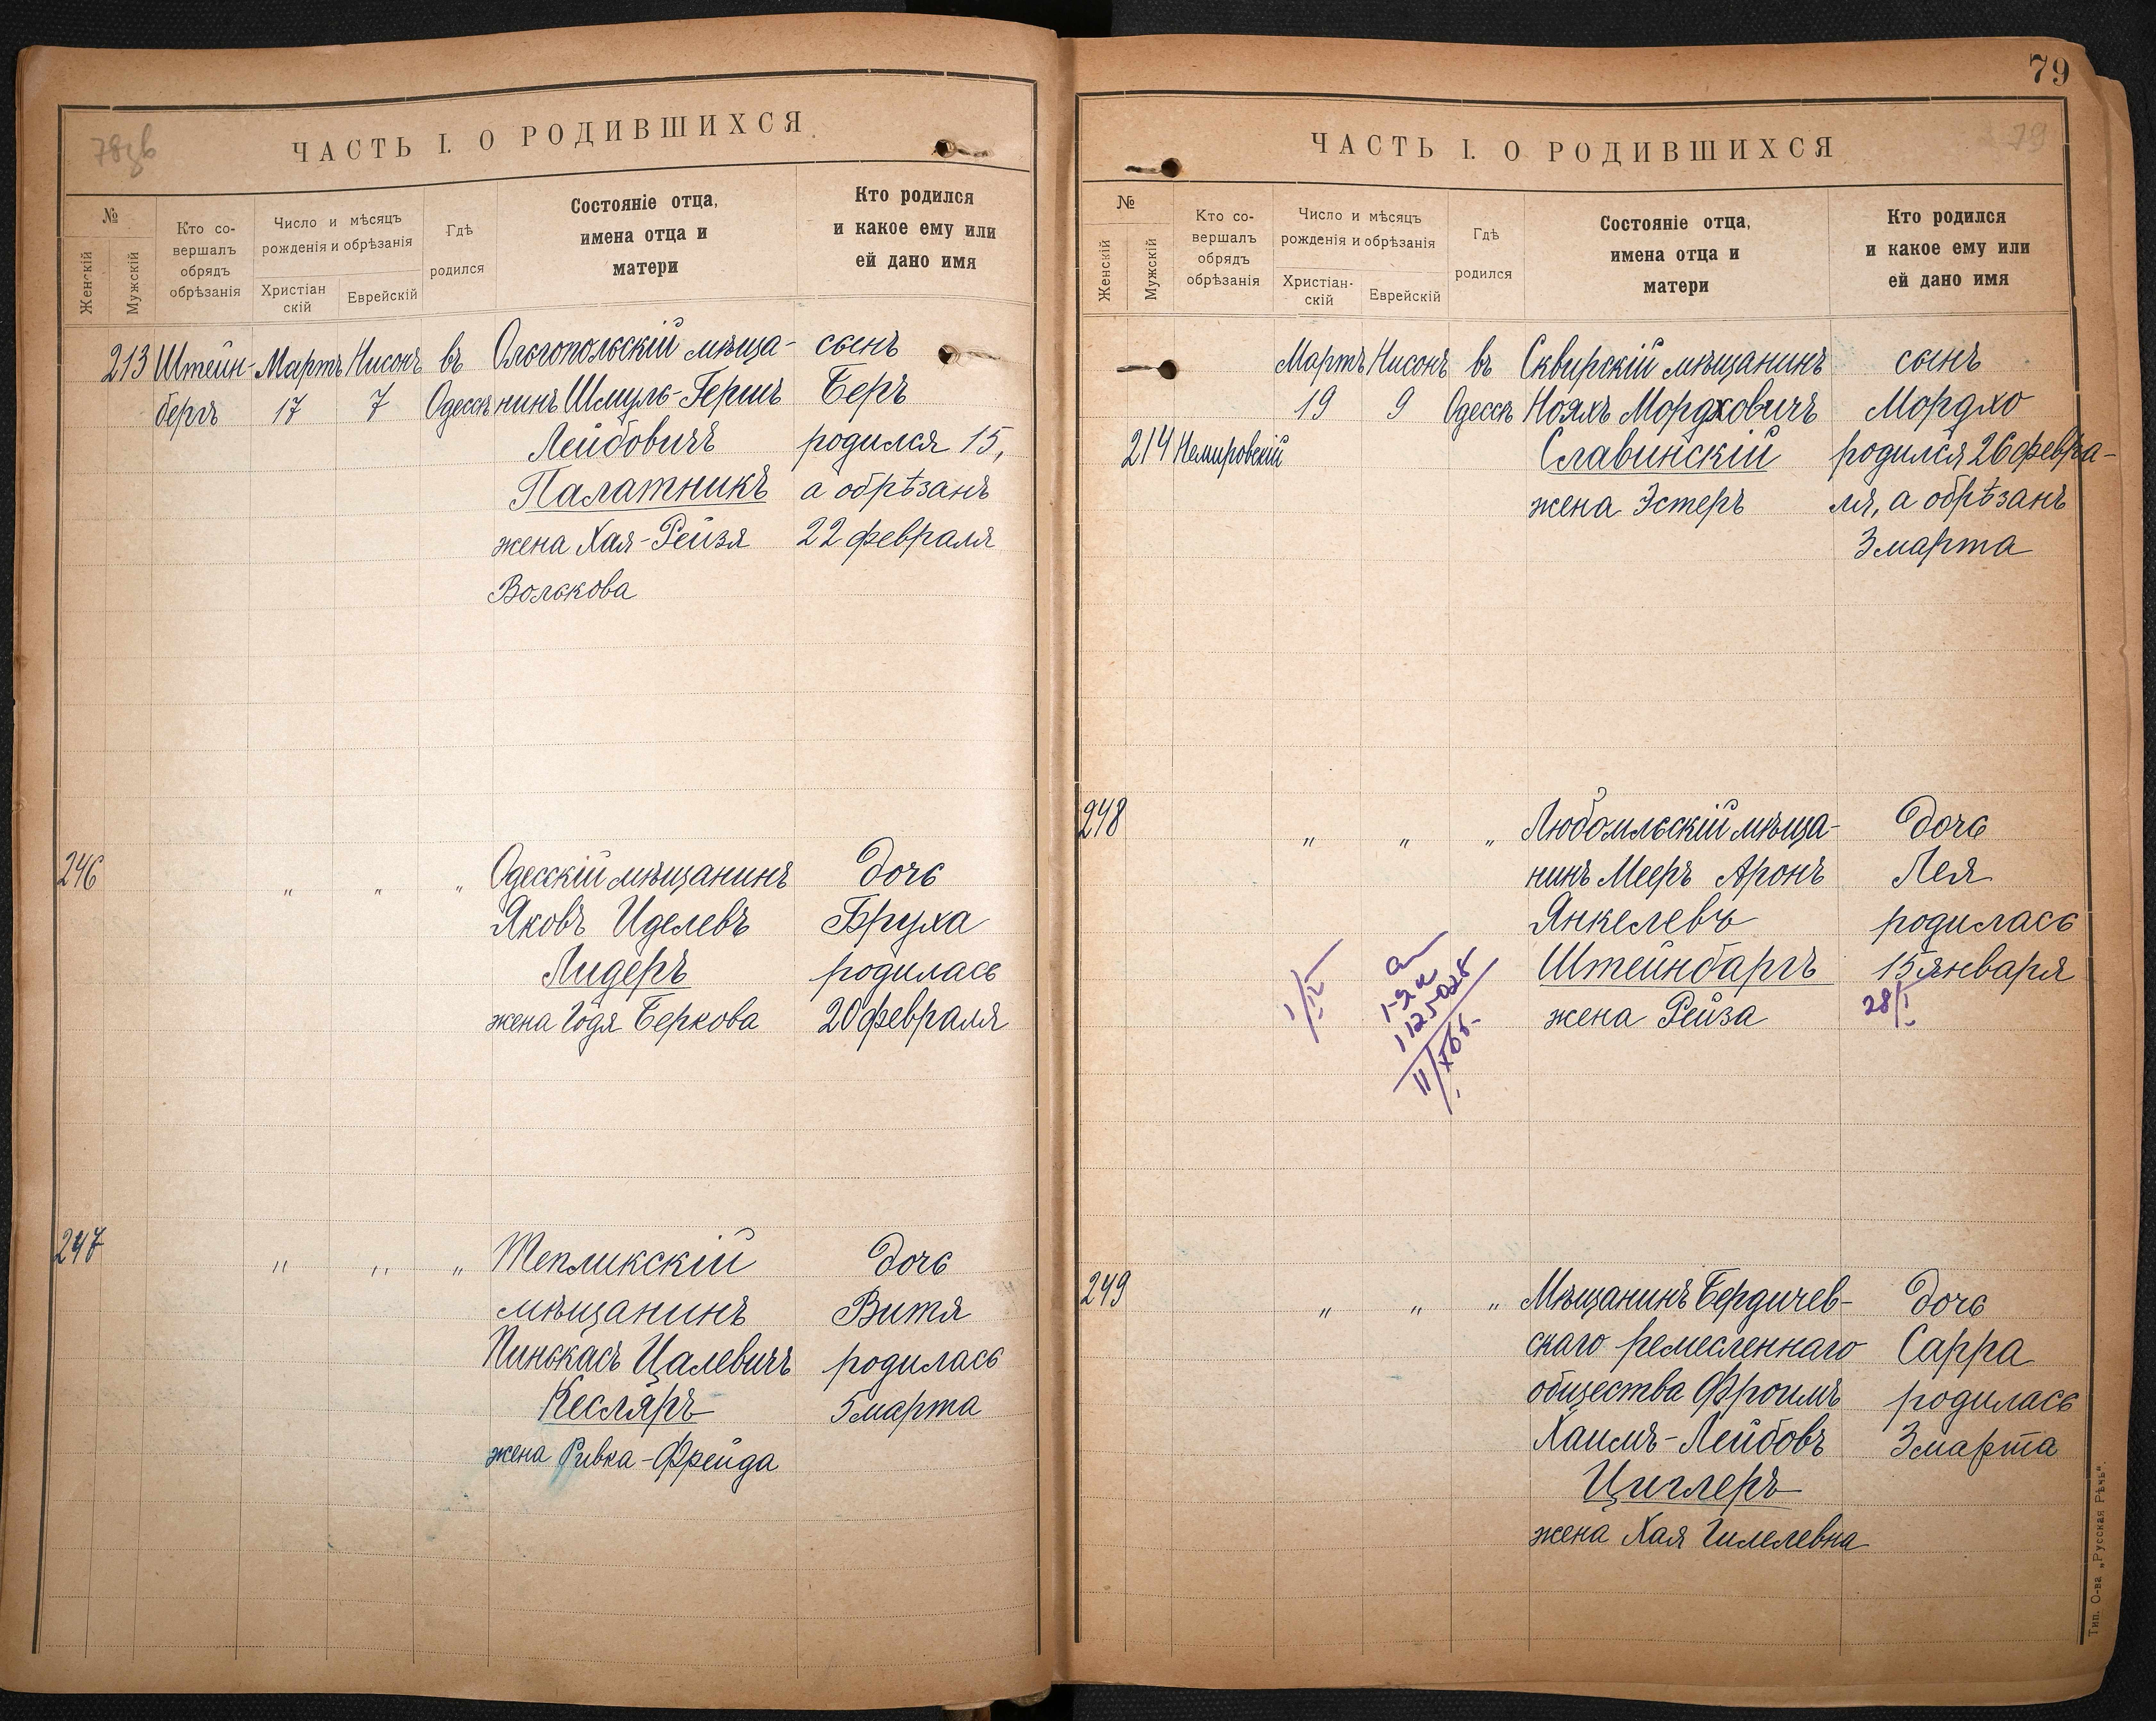 78зв
ЧАСТЬ I. О РОДИВШИХСЯ
№
Женскій
Мужскій
Кто со-
вершалъ
обрядъ
обрѣзанія
Число и мѣсяцъ
рожденія и обрѣзанія
Христіан
скій
Еврейскій
Гдѣ
родился
Состояніе отца,
имена отца и
матери
Кто родился
и какое ему или
ей дано имя
213 Штейн- Мартъ Нисонъ въ Ольгопольскій мѣща- сынъ
бергъ 17 7 Одессѣ нинъ Шмуль-Гершъ Беръ
Лейбовичъ родился 15,
Палатникъ а обрѣзанъ
жена Хая-Рейзя 22 февраля
Волькова
246 " " " Одесскій мѣщанинъ дочь
Яковъ Иделевъ Бруха
Лидеръ родилась
жена Годя Беркова 20 февраля
247 " " " Тепликскій дочь
мѣщанинъ Витя
Пинькасъ Цалевичъ родилась
Кесляръ 5 марта
жена Ривка-Фрейда
79
79
ЧАСТЬ I. О РОДИВШИХСЯ
№
Женскій
Мужскій
Кто со-
вершалъ
обрядъ
обрѣзанія
Число и мѣсяцъ
рожденія и обрѣзанія
Христіан-
скій
Еврейскій
Гдѣ
родился
Состояніе отца,
имена отца и
матери
Кто родился
и какое ему или
ей дано имя
Мартъ Нисонъ въ Сквирскій мѣщанинъ сынъ
19 9 Одессѣ Нояхъ Мордховичъ Мордхо
214 Немировскій Славинскій родился 26 февра-
жена Эстеръ ля, а обрѣзанъ
3 марта
248 " " " Любомльскій мѣща- дочь
нинъ Мееръ Аронъ Лея
Янкелевъ родилась
Штейнбаргъ 15 января
жена Рейза 28/I
1/IV
249 " " " Мѣщанинъ Бердичев- дочь
скаго ремесленнаго Сарра
общества Фроимъ родилась
Хаимъ-Лейбовъ 3 марта
Циглеръ
жена Хая Гилелевна
Тип. О-ва „Русская Рѣчь“.